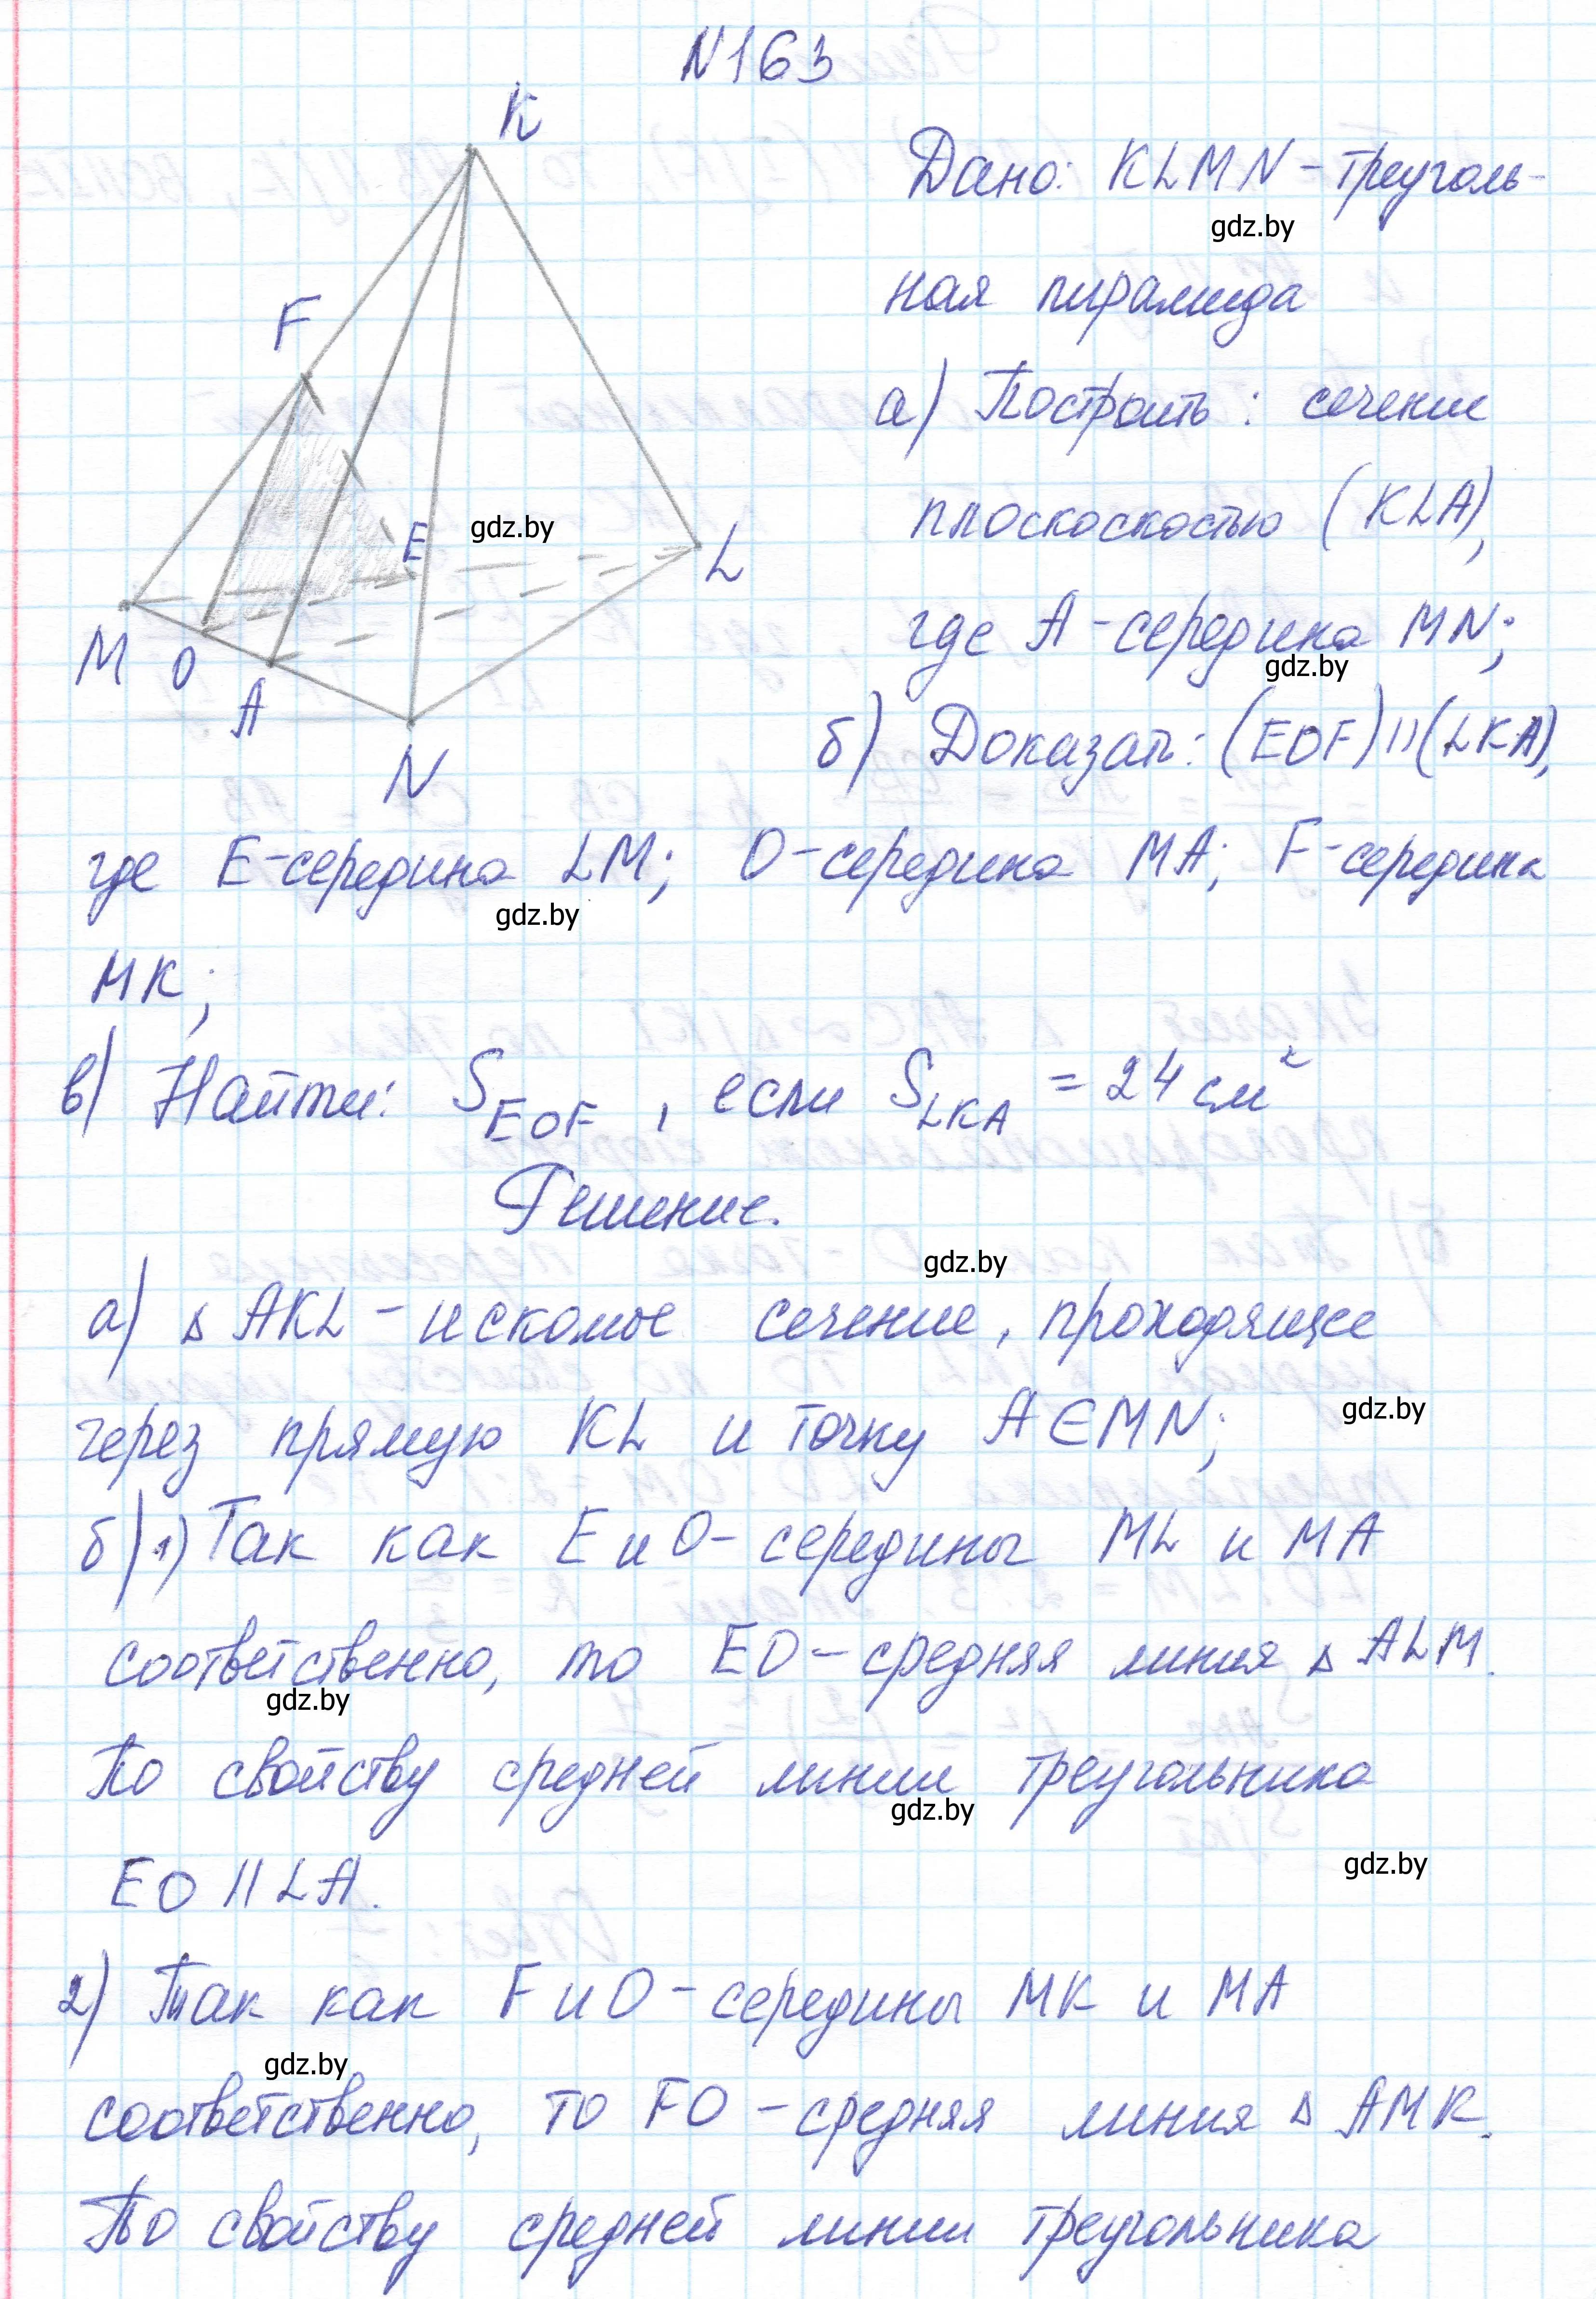 N163
K
Дано: KLMN - треуголь-
gdz.by
ная пирамида
F
а) Построить: сечение
плоскоскостью (KLA),
E
gdz.by
L
где A - середина MN;
gdz.by
M O A
N
б) Доказать: (EOF)||(LKA),
где E-середина LM; O-середина MA; F-середина
gdz.by
MK;
в) Найти: S EOF, если S LKA = 24 см²
Решение.
gdz.by
а) Δ AKL - искомое сечение, проходящее
через прямую KL и точку A∈MN;
gdz.by
б) 1) Так как E и O - середины ML и MA
соответственно, то EO - средняя линия Δ ALM.
gdz.by
По свойству средней линии треугольника
gdz.by
EO || LA.
gdz.by
2) Так как F и O - середины MK и MA
gdz.by
соответственно, то FO - средняя линия Δ AMK.
По свойству средней линии треугольника